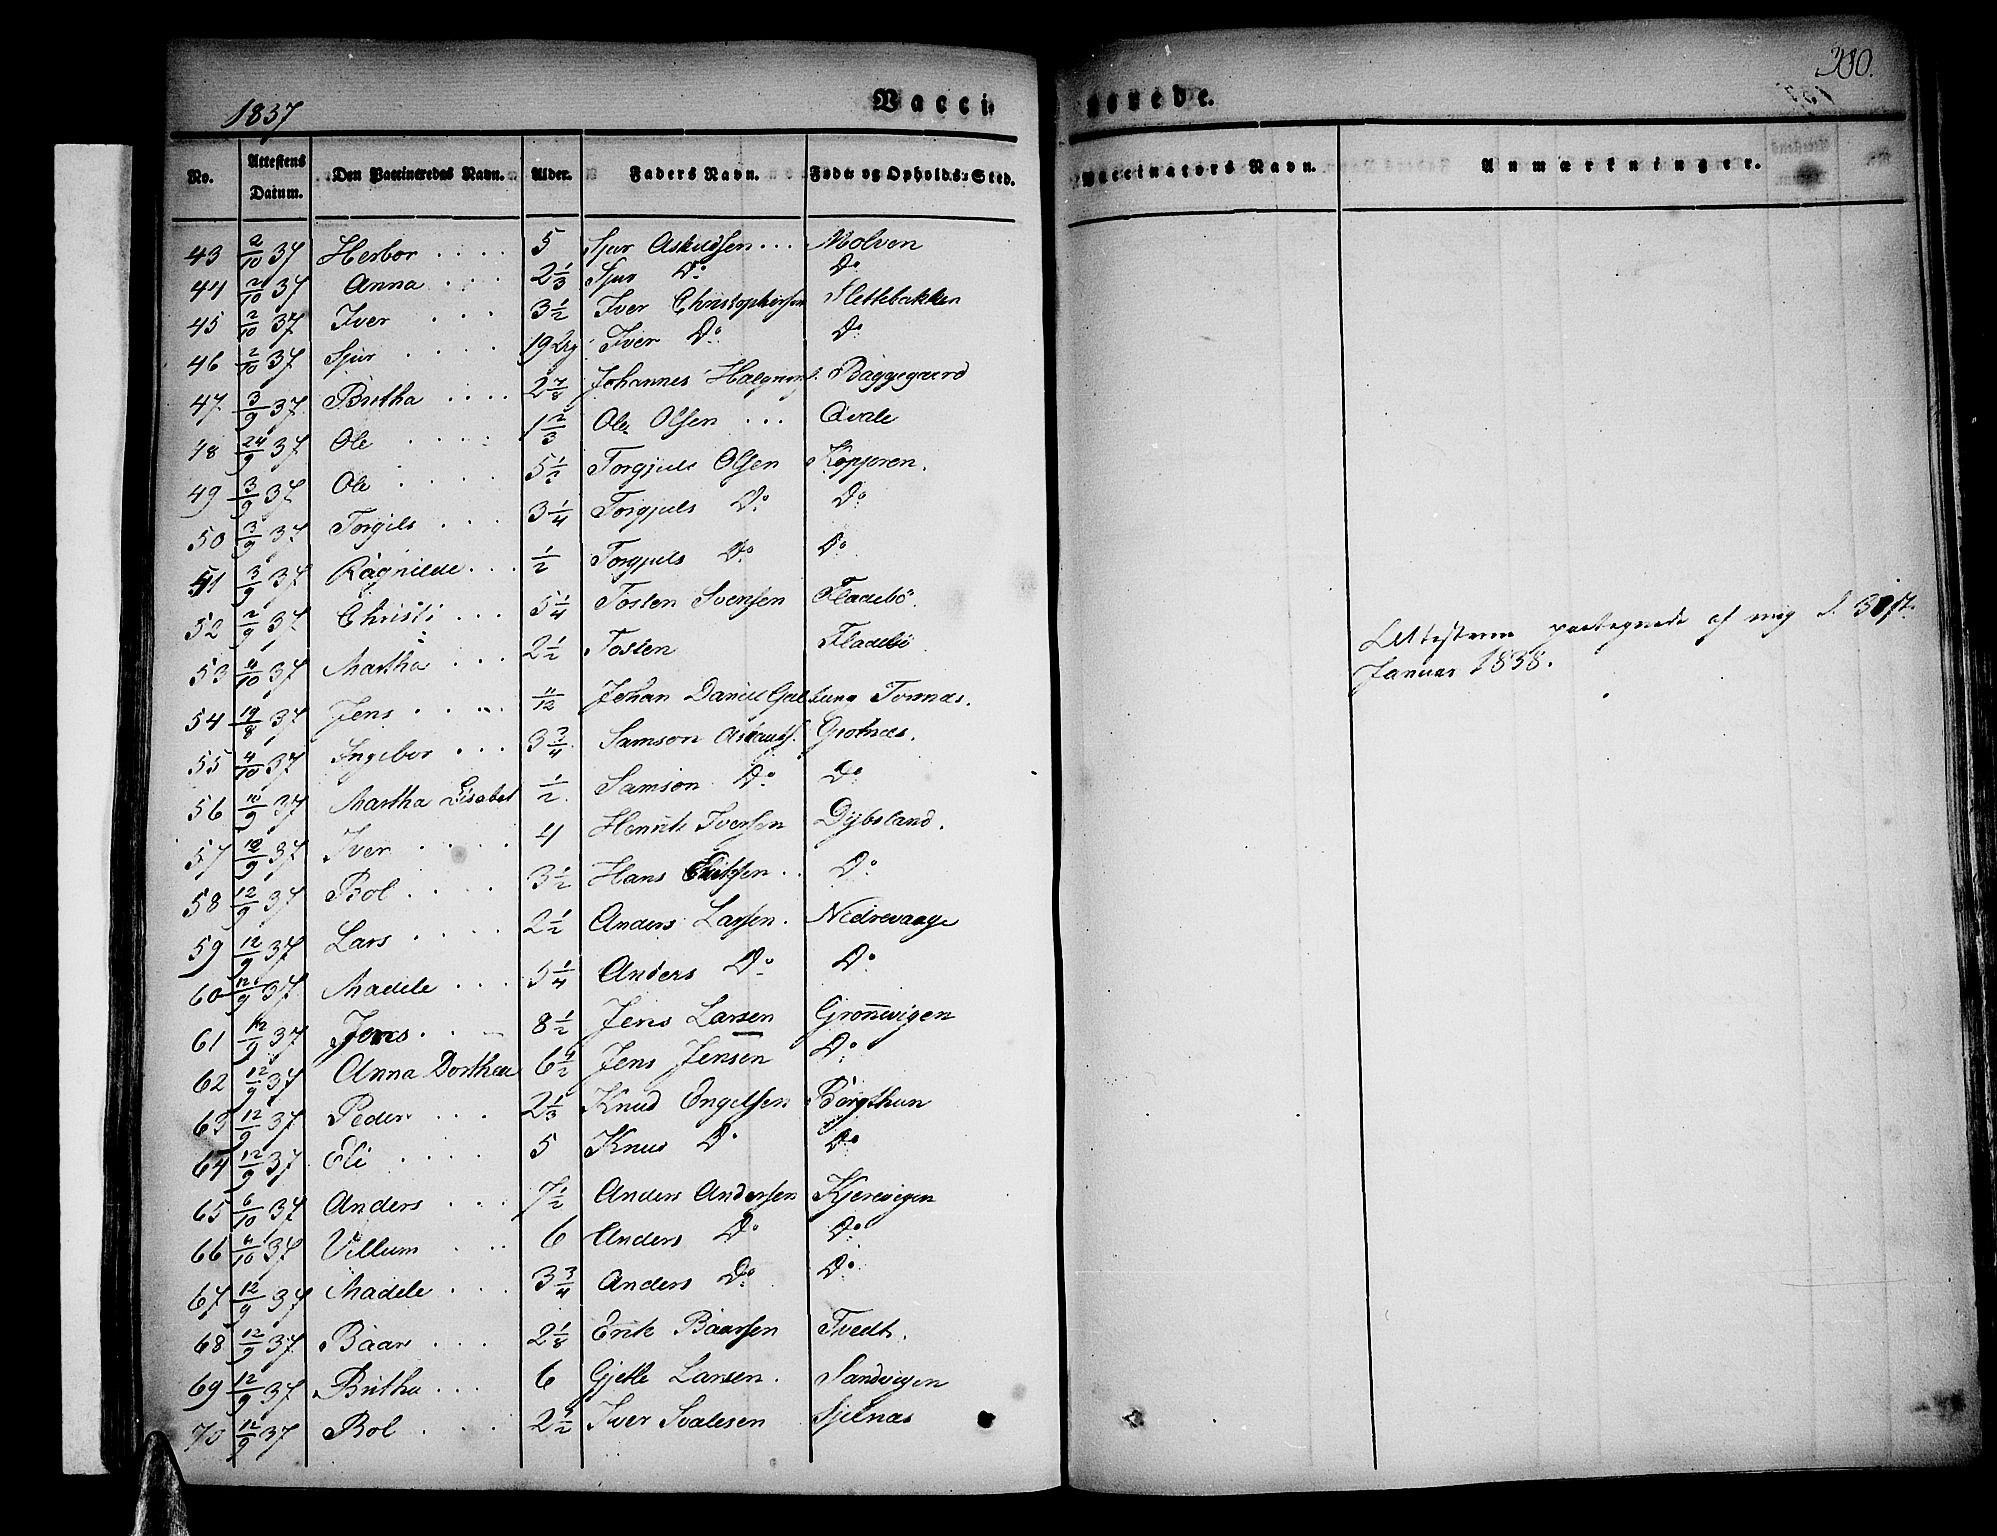 1837
Vaccinerede.
380.
No. Attestens Datum. Den Vaccineredes Navn. Alder. Faders Navn. Føde- og Opholds-Sted. Vaccinators Navn. Anmærkninger.
43 2/10 37 Herbor . . . . 5 Sjur Askildsen . . . Molven
44 2/10 37 Anna . . . 2 1/3 Sjur Do Do
45 2/10 37 Iver . . . 3 1/2 Iver Christophersen Slettebakken
46 2/10 37 Sjur . . . . 19 Iver Do Do
47 3/9 37 Britha . . . . 2 7/8 Johannes Baggegaard
48 24/9 37 Ole . . . . 1 2/3 Ole Olsen . . . Qvale
49 3/9 37 Ole . . . . 5 1/2 Torgjuls Olsen Kopperen.
50 3/9 37 Torgils . . . 3 1/4 Torgjuls Do Do
51 3/9 37 Ragnilde . . . 1/2 Torgjuls Do Do
52 2/9 37 Christi . . . 5 1/4 Tosten Svensen Fladebö.
53 4/10 37 Martha . . . 2 1/2 Tosten Fladebö
54 19/8 37 Jens . . . . 11/12 Johan Daniel Tornæs.
55 4/10 37 Ingebor . . . 3 3/4 Samson Grotnæs.
56 10/9 37 Martha Lisabet 1/2. Samson Do Do
57 12/9 37 Iver . . . . 4 Henrik Iversen Dybsland.
58 12/9 37 Bol . . . . 3 1/2 Hans Eriksen . . Do
59 12/9 37 Lars . . . . 2 1/2 Anders Larsen . Nedrevaage
60 12/9 37 Madele . . . 5 1/4 Anders Do Do
61 12/9 37 Jens . . . 8 1/2 Jens Larsen Gronnvigen
62 12/9 37 Anna Dorthea 6 1/2 Jens Jensen Do
63 12/9 37 Peder . . . 2 1/3 Knud Engelsen Börgthun
64 12/9 37 Eli . . . . 5 Knud Do Do
65 6/10 37 Anders . . . 7 1/2 Anders Andersen Kjerevigen
66 6/10 37 Villum . . . 6 Anders Do Do
67 12/9 37 Madele . . . 3 3/4 Anders Do Do
68 12/9 37 Baar . . . 2 1/8 Erik Baarsen Tvedt.
69 12/9 37 Britha . . . 6 Gjetle Larsen . Sandvigen
70 12/9 37 Bol . . . 2 1/2 Iver Sjelnæs
Attesterne paategnede af mig d. 30te
Januar 1838.